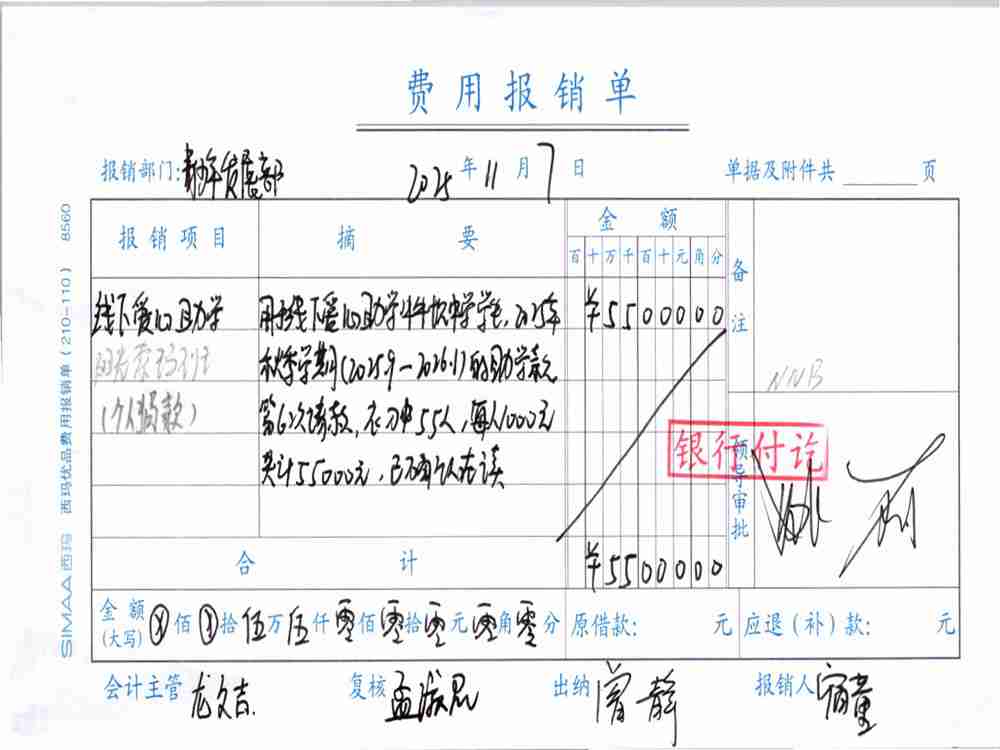 费用报销单
报销部门: 发展部 2025 年 11 月 7 日 单据及附件共 页
报销项目 摘要 金额 备注
百 十 万 千 百 十 元 角 分
线下爱心助学 用于线下爱心助学 中学学生, 2025年 ¥5500000
秋季学期(2025.9-2026.1)的助学款
(个人捐款) 第 次 款, 55人, 每人1000元
共计55000元, 已确认在读
NNB
银行付讫
领导审批
合计 ¥5500000
金额(大写) ⊗佰 ⊗拾 伍万 伍仟 零佰 零拾 零元 零角 零分 原借款: 元 应退(补)款: 元
会计主管 龙文吉 复核 孟 出纳 曾静 报销人 童
SIMAA 西玛 西玛优品费用报销单(210-110) 8560